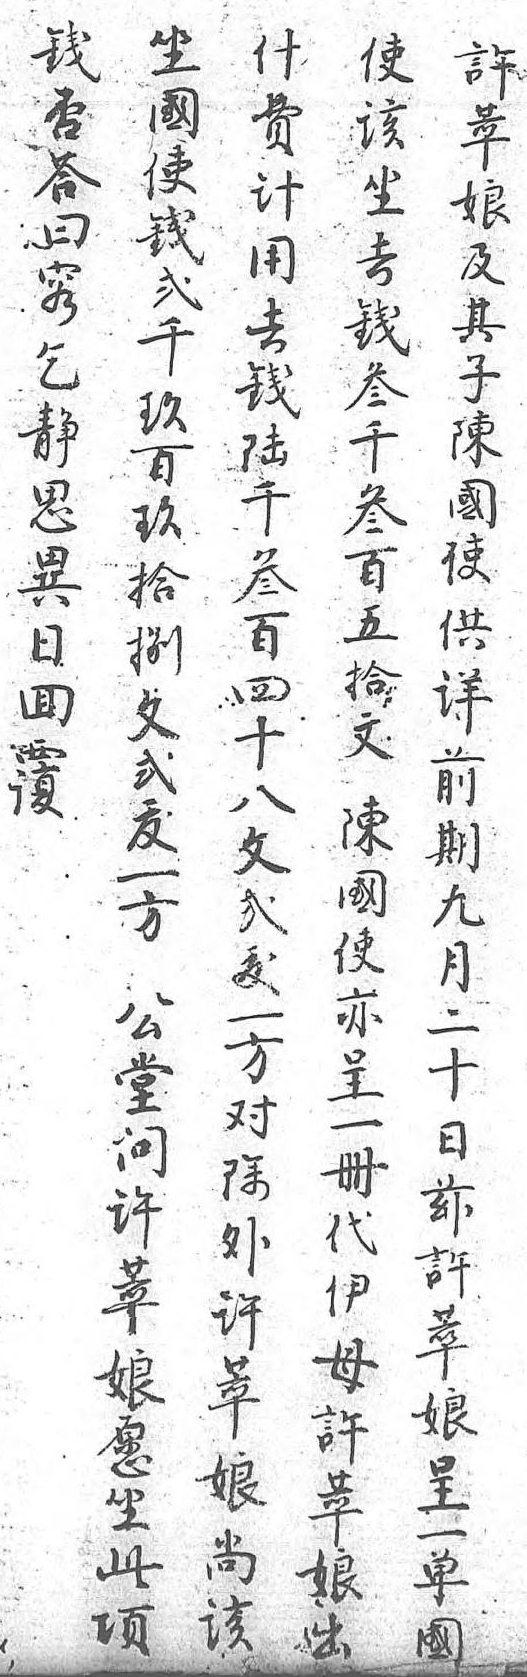 許葦娘及其子陳國使供詳前期九月二十日茲許葦娘呈一单國
使該坐去錢叁千叁百五拾文陳國使亦呈一冊代伊母許葦娘出
什費計用去錢陆千叁百四十八文弍爻一方对除外许葦娘尚該
坐國使錢弍千玖百玖拾捌文弍爻一方公堂问许葦娘愿坐此項
錢否答曰容乞静思異日回覆